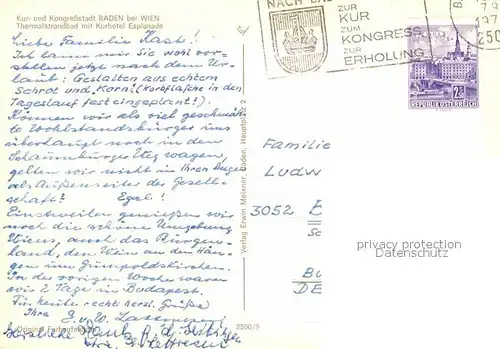 Kur- und Kongreßstadt BADEN bei WIEN
Thermalstrandbad mit Kurhotel Esplanade
Liebe Familie Hast!
Ich kann mir Sie wohl vor-
stellen jetzt nach dem Ur-
laub: Gestalten aus echtem
Schrot und "Korn" (Kornflasche in den
Tageslauf fest eingeplant!).
Können wir als viel geschmäh-
te Wohlstandsbürger uns
überhaupt noch in den
Schaumburger Weg wagen,
gelten wir nicht in Ihren Augen
als Außenseiter der Gesell-
schaft? Egal!
Einstweilen genießen wir
noch die schöne Umgebung
Wiens, auch das Burgen-
land, den Wein an den Hän-
gen um Gumpoldskirchen.
In der vorigen Woche waren
wir 2 Tage in Budapest.
Für heute recht herzl. Grüße
Ihre E. u. W.
Herzliche
Original Farbaufnahme
2500/9
Verlag Erwin Meixner, Baden, Hauptplatz 2
NACH BAD
ZUR
KUR
ZUM
KONGRESS
ZUR
ERHOLUNG
REPUBLIK ÖSTERREICH
Familie
Ludw
3052
privacy protection
Datenschutz
DE